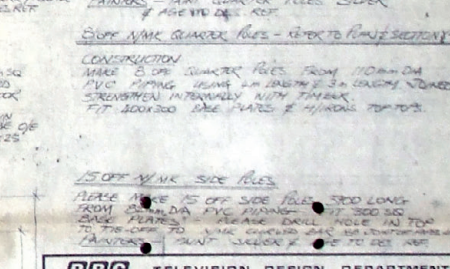 PAINTERS - PAINT QUARTER POLES SILVER
& AGE TO DES REF.
8 OFF N/MK QUARTER POLES - REFER TO PLAN & SECTION
CONSTRUCTION
MAKE 8 OFF QUARTER POLES FROM 110mm DIA
PVC PIPING USING 4m LENGTH & 3m LENGTH JOINED
STRENGTHEN INTERNALLY WITH TIMBER.
FIT 400X300 BASE PLATES & M/IRONS TOP
15 OFF N/MK SIDE POLES
PLEASE MAKE 15 OFF SIDE POLES LONG
FROM DIA PVC PIPING FIT 300 SQ
BASE PLATES PLEASE DRILL HOLE IN TOP
TO TIE-OFF TO N/MK CURVED BAR
PAINTERS PAINT SILVER & TO DES REF
BBC TELEVISION DESIGN DEPARTMENT